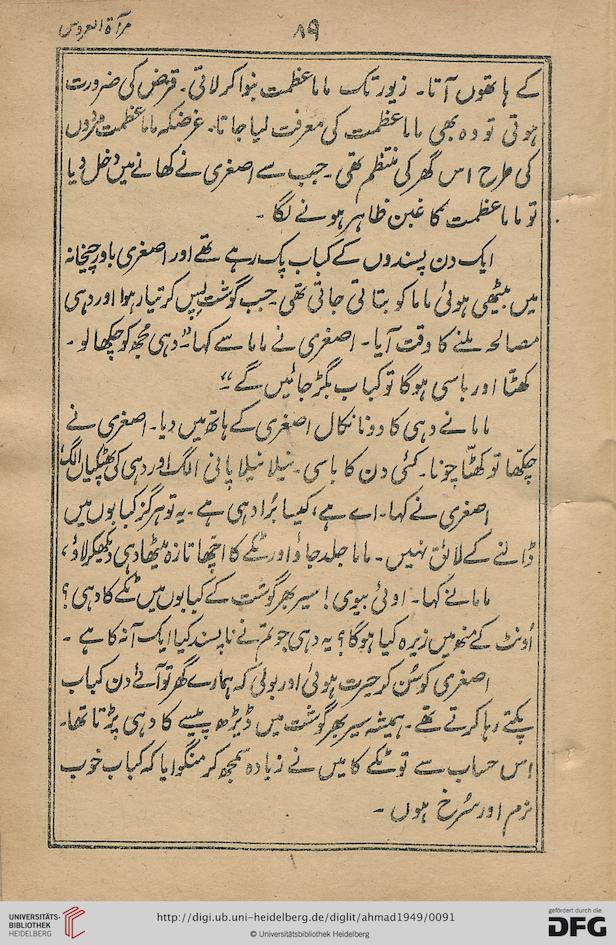 مرآۃ العروس
۸۹
کے ہاتھوں آتا۔ زیور تک ماما عظمت بنوا کر لاتی۔ قرض کی ضرورت
ہوتی تو وہ بھی ماما عظمت کی معرفت لیا جاتا۔ غرضکہ ماما عظمت مردوں
کی طرح اس گھر کی منتظم تھی۔ جب سے اصغری نے کھانے میں دخل دیا
تو ماما عظمت کا غبن ظاہر ہونے لگا۔
ایک دن پسندوں کے کباب پک رہے تھے اور اصغری باورچیخانہ
میں بیٹھی ہوئی ماما کو بتاتی جاتی تھی۔ جب گوشت پِس کر تیار ہوا اور دہی
مصالحہ ملنے کا وقت آیا۔ اصغری نے ماما سے کہا۔ “دہی مجھ کو چکھا لو۔
کھٹّا اور باسی ہوگا تو کباب بگڑ جائیں گے”
ماما نے دہی کا دونا نکال اصغری کے ہاتھ میں دیا۔ اصغری نے
چکھّا تو کھٹّا چونا۔ کئی دن کا باسی۔ نیلا نیلا پانی الگ اور دہی کی پھٹکیاں الگ
اصغری نے کہا۔ اے ہے، کیسا بُرا دہی ہے۔ یہ تو ہرگز کبابوں میں
ڈالنے کے لائق نہیں۔ ماما جلد جاؤ اور ٹکے کا اچھا تازہ میٹھا دہی دیکھکر لاؤ،
ماما نے کہا۔ اوئی بیوی! سیر بھر گوشت کے کبابوں میں ٹکے کا دہی؟
اُونٹ کے منھ میں زیرہ کیا ہوگا؟ یہ دہی جو تم نے ناپسند کیا ایک آنہ کا ہے۔
اصغری کو سُن کر حیرت ہوئی اور بولی کہ ہمارے گھر تو آئے دن کباب
پکتے رہا کرتے تھے۔ ہمیشہ سیر بھر گوشت میں ڈیڑھ پیسے کا دہی پڑتا تھا۔
اس حساب سے تو ٹکے کا میں نے زیادہ سمجھ کر منگوایا کہ کباب خوب
نرم اور سُرخ ہوں۔
UNIVERSITÄTS-
BIBLIOTHEK
HEIDELBERG
http://digi.ub.uni-heidelberg.de/diglit/ahmad1949/0091
© Universitätsbibliothek Heidelberg
gefördert durch die
DFG